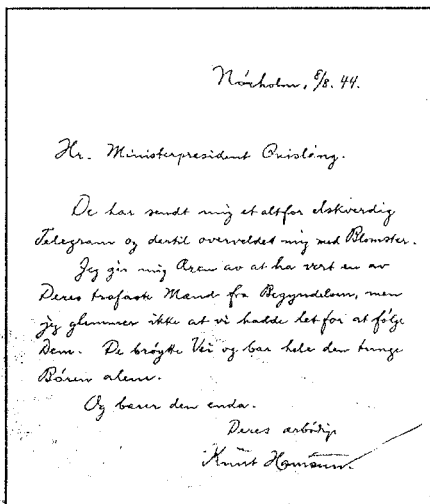 Nörholm, 8/8. 44.
Hr. Ministerpresident Quisling.
De har sendt mig et altfor elskverdig
Telegram og dertil overveldet mig med Blomster.
Jeg gir mig Æren av at ha vert en av
Deres trofaste Mænd fra Begyndelsen, men
jeg glemmer ikke at vi hadde let for at følge
Dem. De brøytte Vei og bar hele den tunge
Bören alene.
Og bærer den enda.
Deres ærbödige
Knut Hamsun.